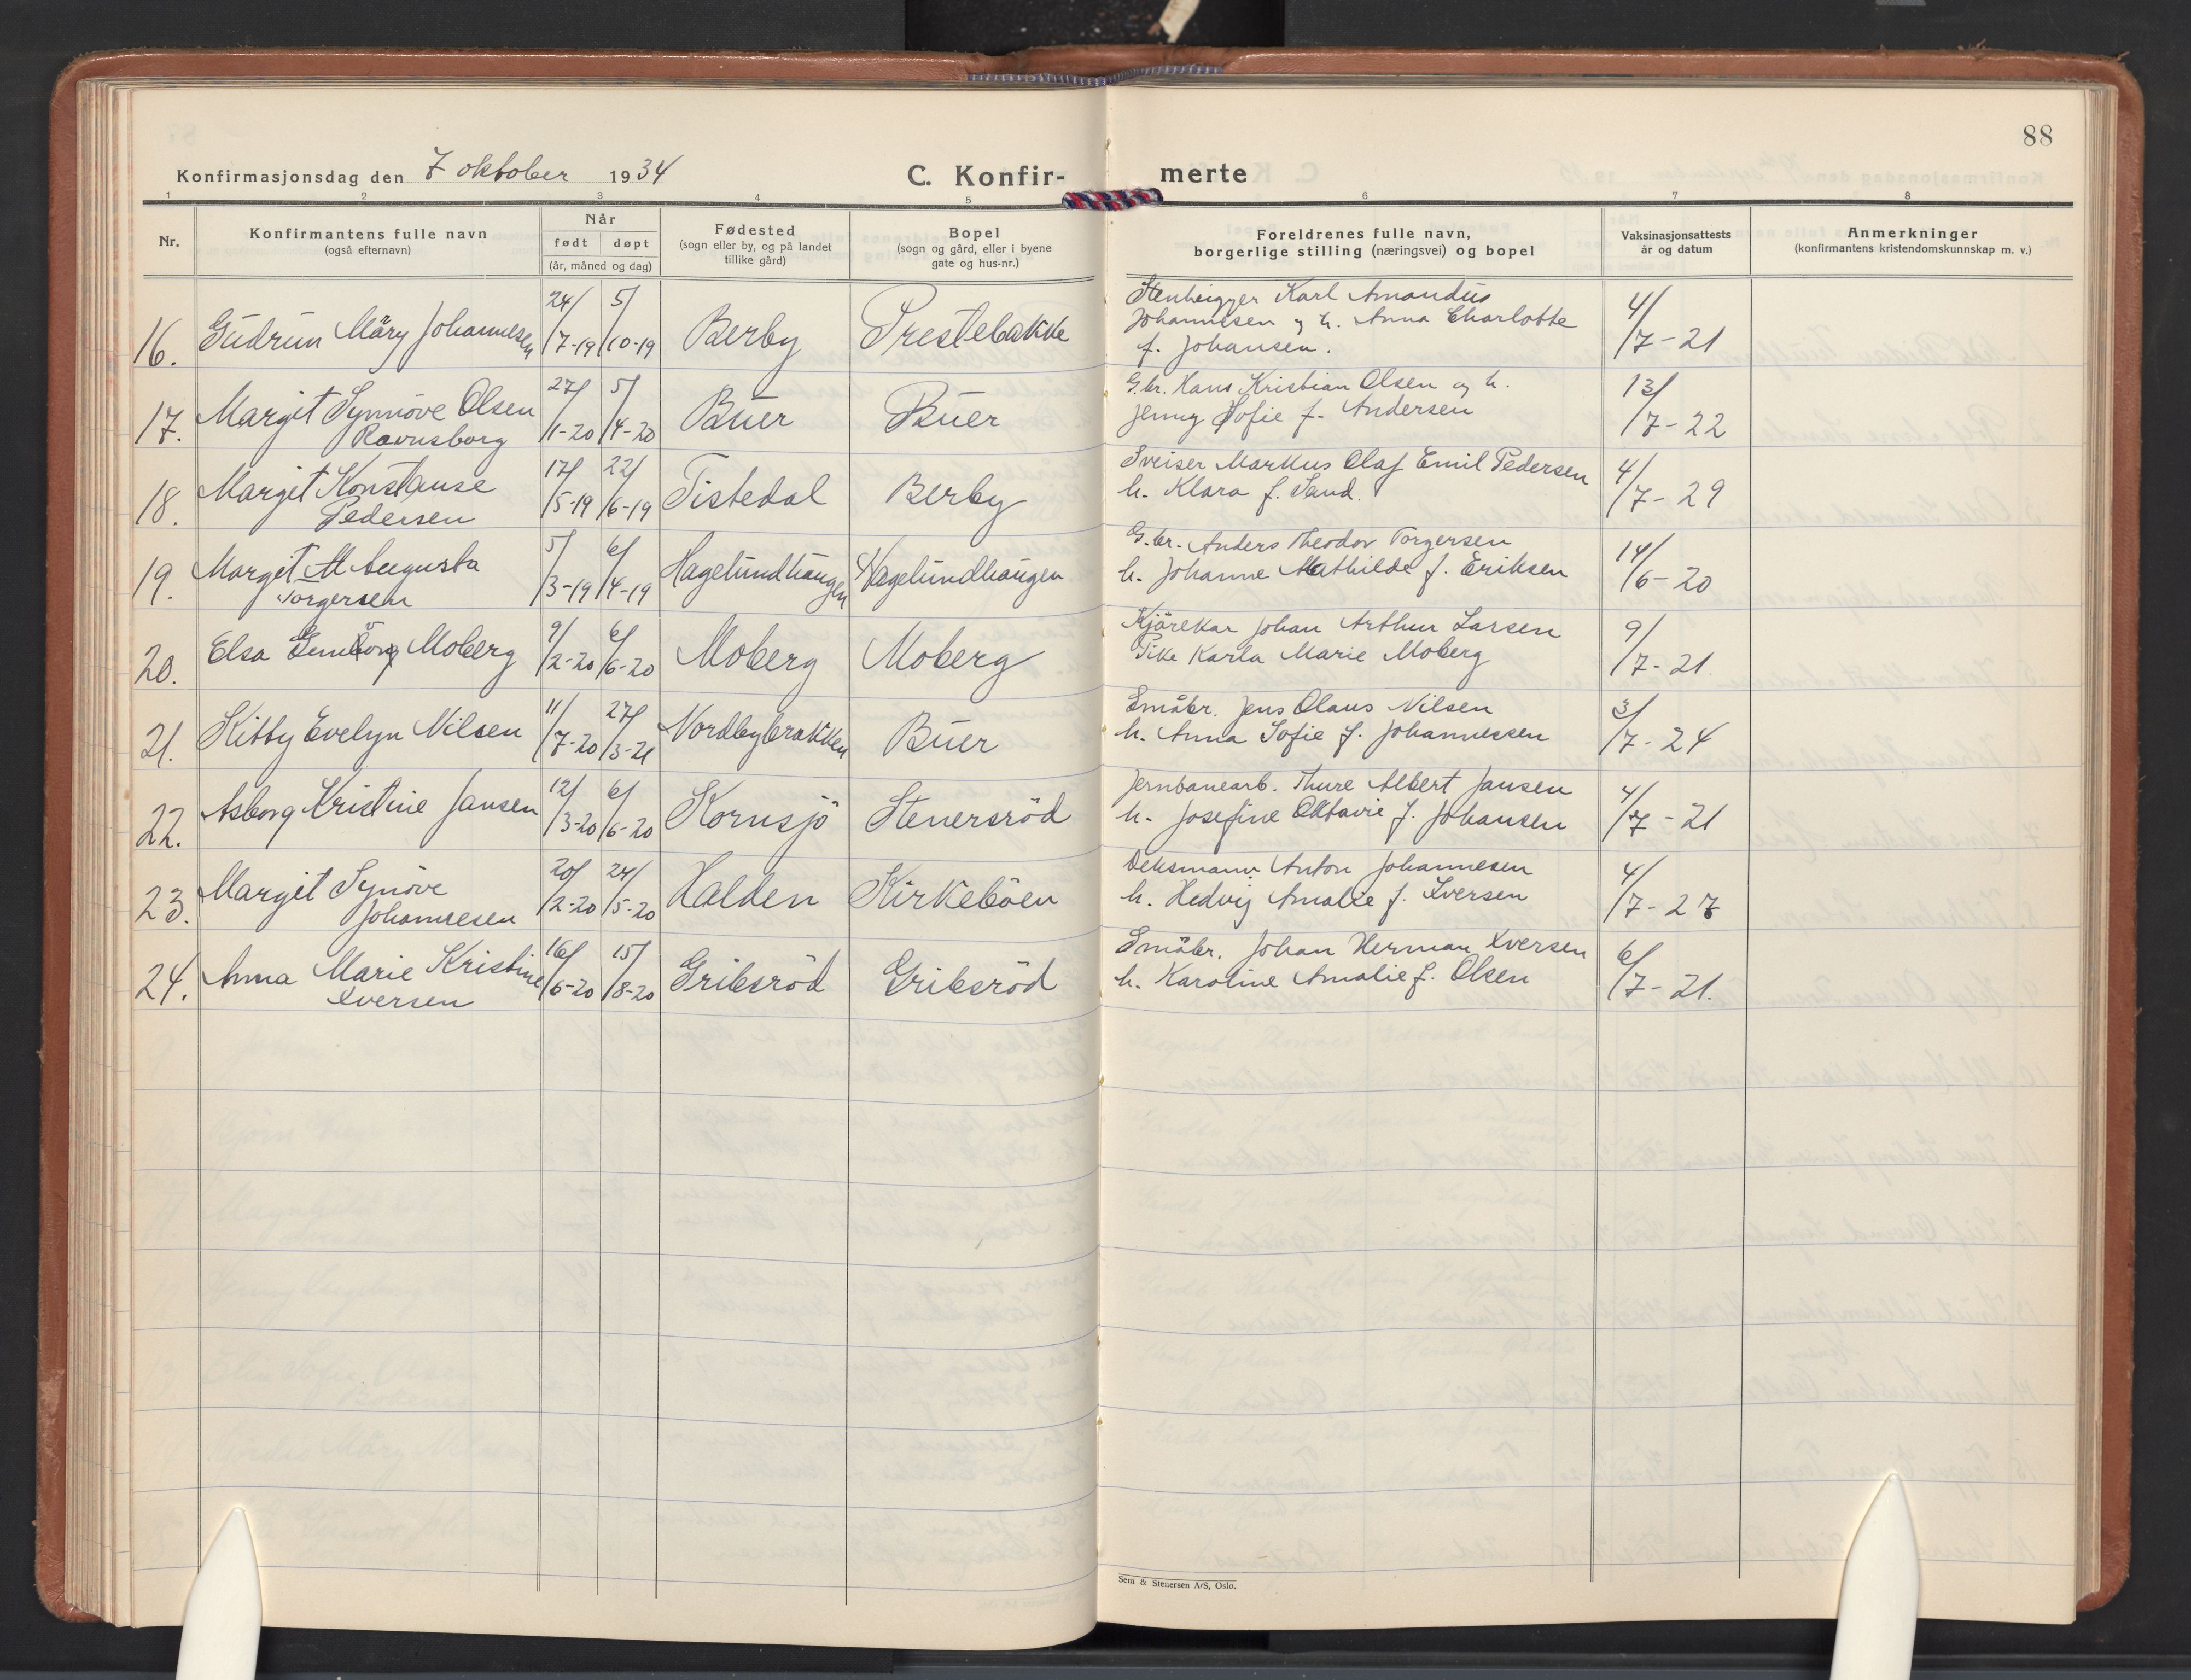 88
Konfirmasjonsdag den 7 oktober 1934
C. Konfir- merte
1 2 3 4 5 6 7 8
Nr.
Konfirmantens fulle navn
(også efternavn)
Når
født døpt
(år, måned og dag)
Fødested
(sogn eller by, og på landet
tillike gård)
Bopel
(sogn og gård, eller i byene
gate og hus-nr.)
Foreldrenes fulle navn,
borgerlige stilling (næringsvei) og bopel
Vaksinasjonsattests
år og datum
Anmerkninger
(konfirmantens kristendomskunnskap m. v.)
16. Gudrun Märy Johannesen 24/7-19 5/10-19 Berby Prestebakke
Stenhugger Karl Amandus
Johannesen og h. Anna Charlotte
f. Johansen.
4/7-21
17. Margit Synnöve Olsen
Ravnsborg
27/1-20 5/4-20 Buer Buer
G.br. Hans Kristian Olsen og h.
Jenny Sofie f. Andersen
13/7-22
18. Margit Konstanse
Pedersen
17/5-19 22/6-19 Tistedal Berby
Sveiser Markus Olaf Emil Pedersen
h. Klara f. Sand.
4/7-29
19. Margit M Augusta
Torgersen
5/3-19 6/4-19 Hagelundhaugen Hagelundhaugen
G.br. Anders Theodor Torgersen
h. Johanne Mathilde f. Eriksen
14/6-20
20. Elsa Moberg 9/2-20 6/6-20 Moberg Moberg
Kjörekar Johan Arthur Larsen
Pike Karla Marie Moberg
9/7-21
21. Kitty Evelyn Nilsen 11/7-20 27/3-21 Nordbybrakken Buer
Småbr. Jens Olaus Nilsen
h. Anna Sofie f. Johannessen
3/7-24
22. Asborg Kristine Jansen 12/3-20 6/6-20 Kornsjö Stenersröd
Jernbanearb. Thure Albert Jansen
h. Josefine Oktavie f. Johansen
4/7-21
23. Margit Synöve
Johannesen
20/2-20 24/5-20 Halden Kirkeböen
Anton Johannesen
h. Hedvig Amalie f. Iversen
4/7-27
24. Anna Marie Kristine
Iversen
16/6-20 15/8-20 Gribsröd Gribsröd
Småbr. Johan Herman Iversen
h. Karoline Amalie f. Olsen
6/7-21.
Sem & Stenersen A/S, Oslo.